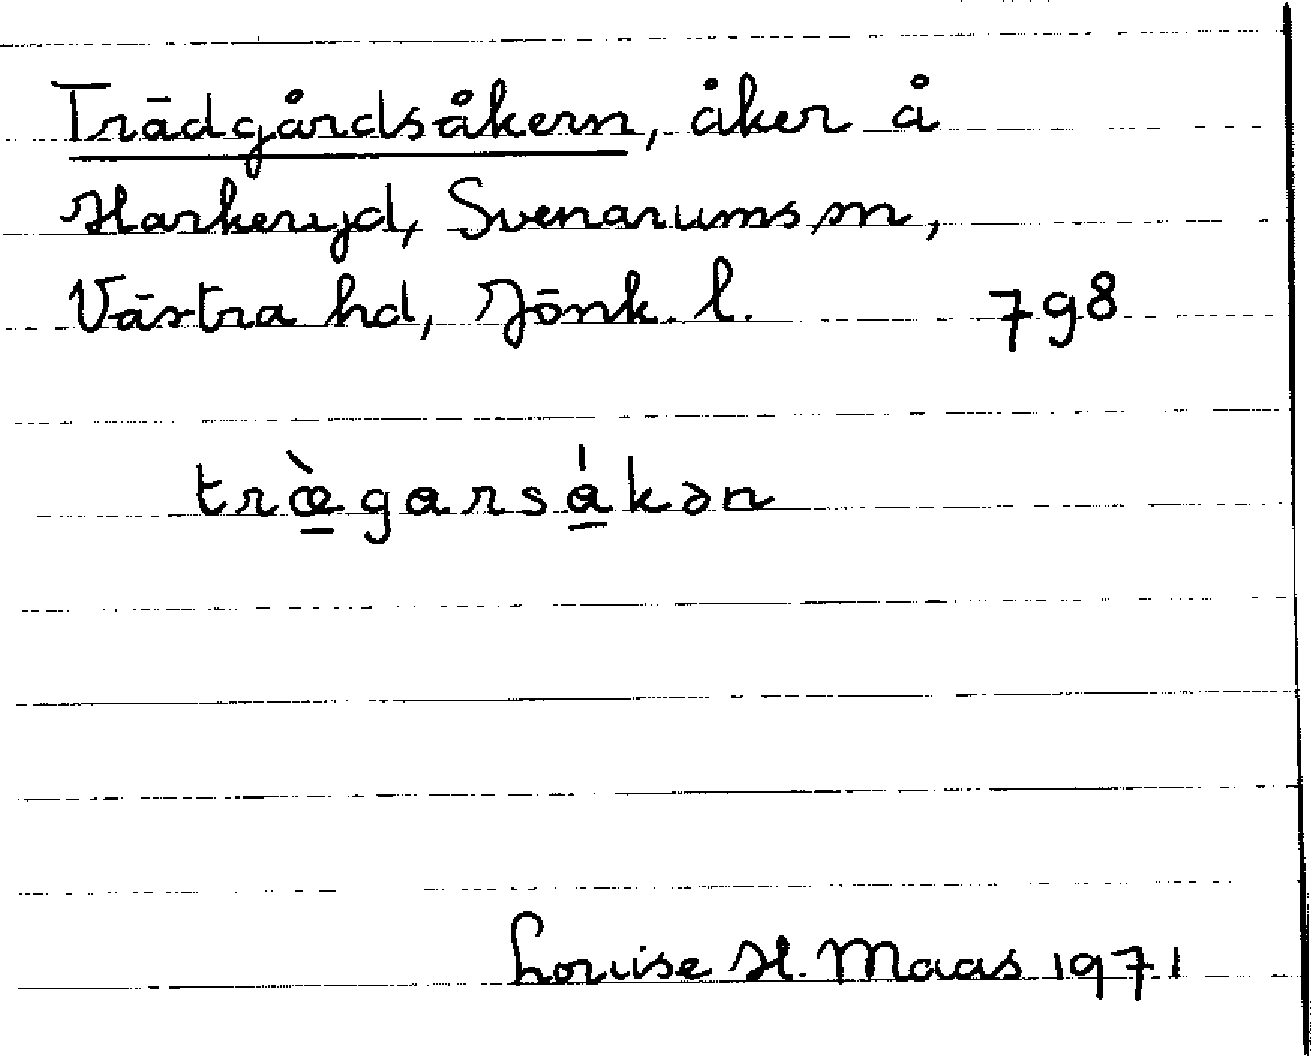 Trädgårdsåkern, åker å
Harkeryd, Svenarums sn,
Västra hd, Jönk. l. 798
træ̀garsákən
Louise H. Maas 1971